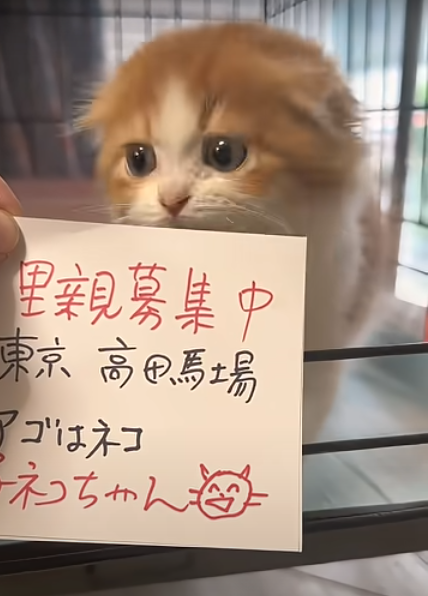 里親募集中
東京 高田馬場
アゴはネコ
ネコちゃん